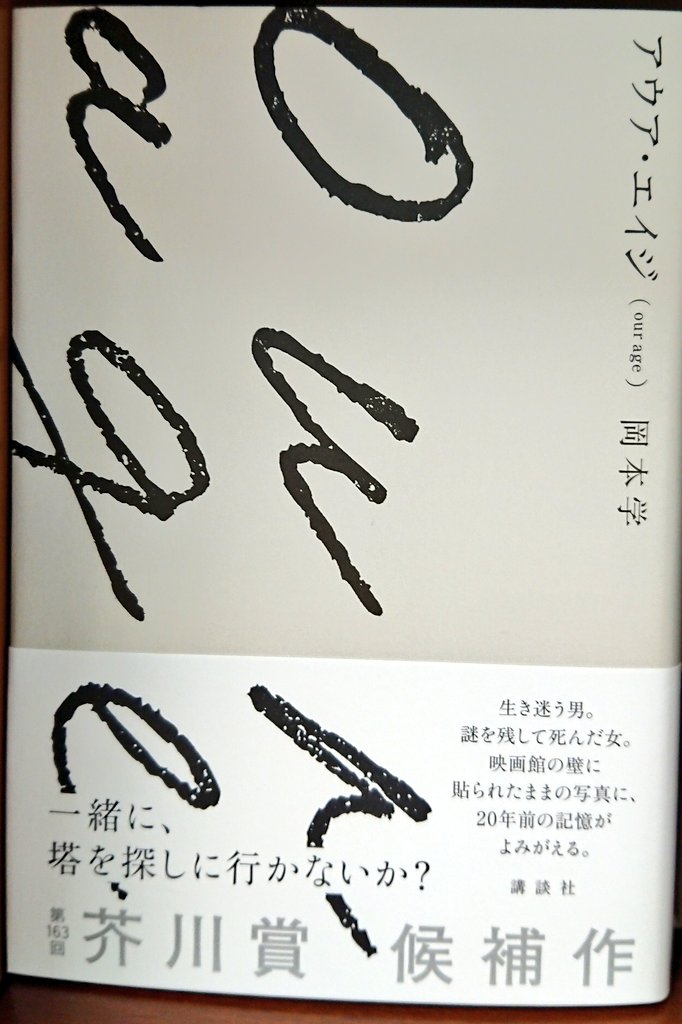 アウア・エイジ (our age) 岡本学
Our
age
生き迷う男。
謎を残して死んだ女。
映画館の壁に
貼られたままの写真に、
20年前の記憶が
よみがえる。
講談社
一緒に、
塔を探しに行かないか?
第163回
芥川賞 候補作